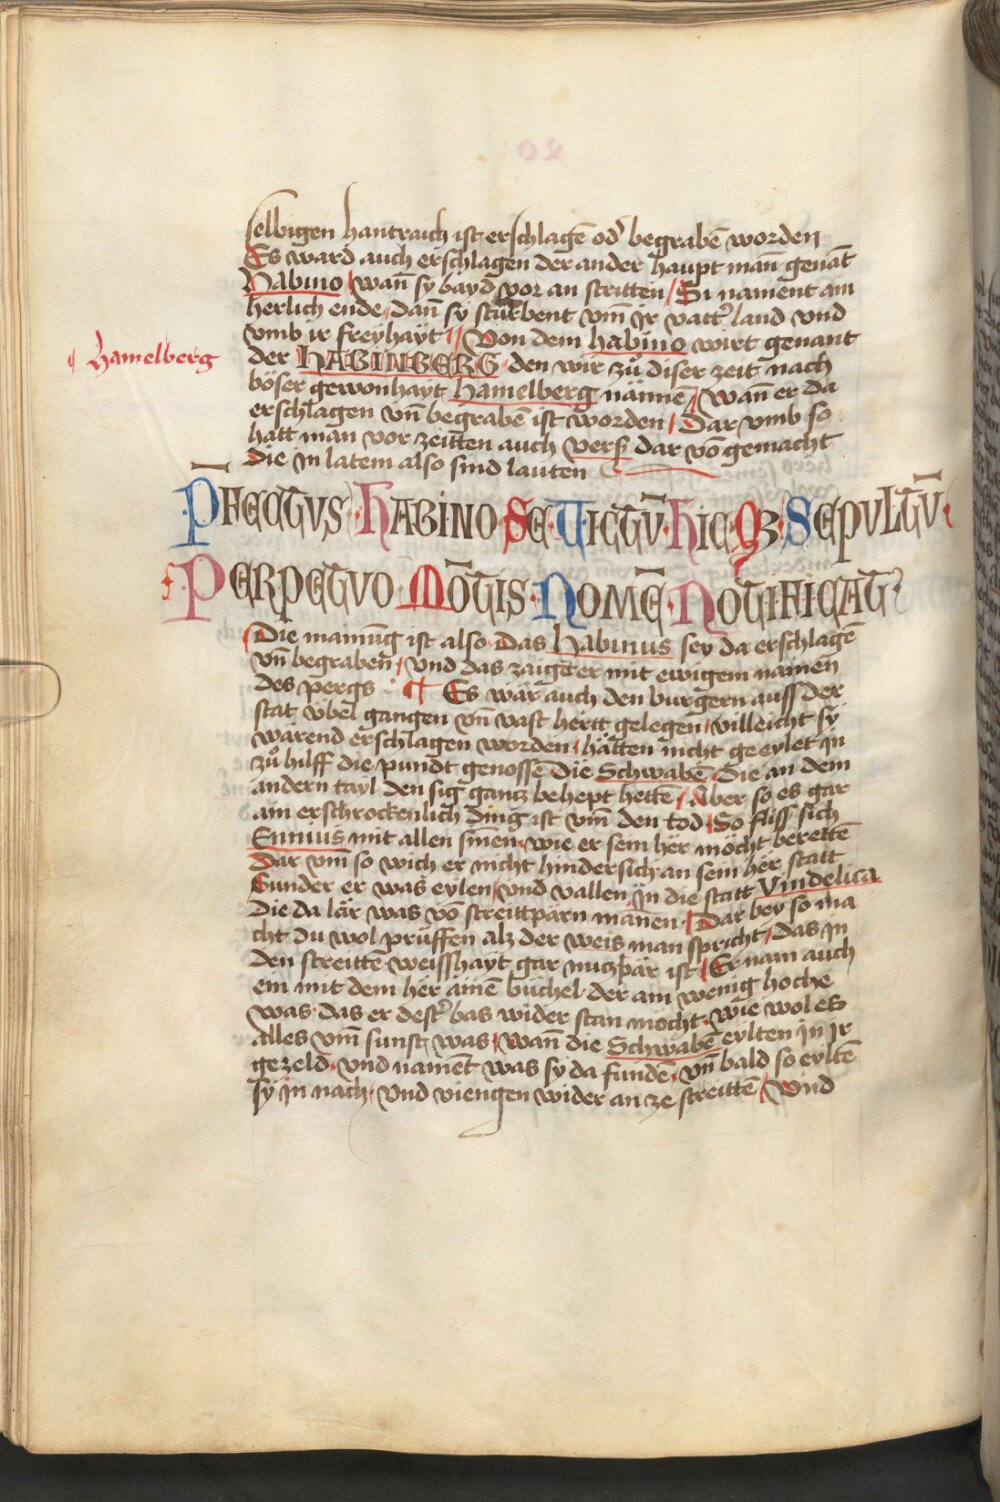 selbigen hantraich ist erschlagē od' begrabē worden
Es ward auch erschlagen der ander haupt man̄ genāt
Habino / wan̄ sy bayd vor an stritten / Si nament ain
herlich ende / dan̄ sy sturbent vm̄ jr vatt' land vnd
vmb ir freyhayt // Von dem habino wirt genant
¶ Hamelberg
der HABINBERG den wir zů diser zeit nach
böser gewonhayt Hamelberg nämīē / wan̄ er da
erschlagen vn̄ begrabē ist worden / Dar vmb so
hatt man vor zeitten auch vers dar vō gemacht
die in latein also sind lauten
P̄FECTVS HABINO SE VICTV̄ HIC Q3 SEPVLTV̄
PERPETVO MŌTIS NOMĒ NOTIFICAT
Die mainūg ist also Das Habinus sey da erschlagē
vn̄ begraben̄ / vnd das zaigt er mit ewigem namen
des pergs ¶ Es wär auch den burgern auss der
stat v̈bel gangen vn̄ vast hertt gelegen / villeicht sy
warend erschlagen worden / hätten nicht geeylet jn
zů hilff die pundt genossē die Schwabē Die an dem
andern tayl den sig gancz behept hettē / Aber so es gar
ain erschrockenlich ding ist vm̄ den tod / So fliss sich
Ennius mit allen sīnen / wie er sein her möcht berettē
Dar vm̄ so wich er nicht hindersich an sein her statt
Sunder er was eylen / vnd vallen jn die statt Vindelica
Die da lär was vō streittparn mänen / Dar bey so ma
cht du wol prüffen alz der weis man spricht / das jn
den streittē weisshayt gar nuczbär ist / Er nam auch
ein mit dem her ainē büchel der ain wenig hoche
was das er dest' bas wider stan möcht wie wol es
alles vm̄ sunst was / wan̄ die Schwabē eylten jn jr
gezeld vnd namēt was sy da fundē vn̄ bald so eyltē
sy jn nach / vnd viengen wider an ze streittē / Vnd